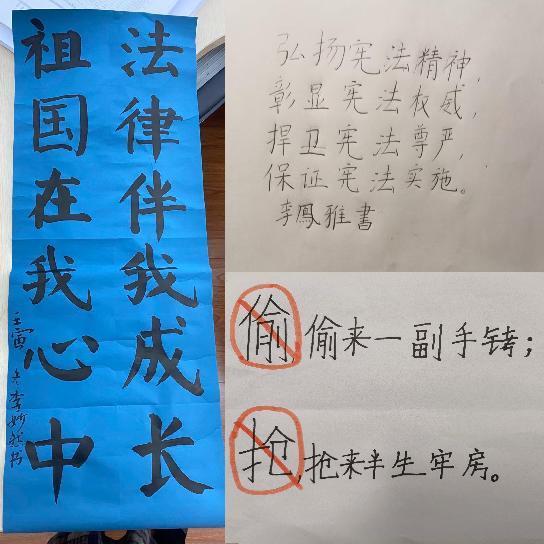 法律伴我成长
祖国在我心中
弘扬宪法精神，
彰显宪法权威，
捍卫宪法尊严，
保证宪法实施。
李鳳雅書
偷 偷来一副手铐；
抢，抢来半生牢房。